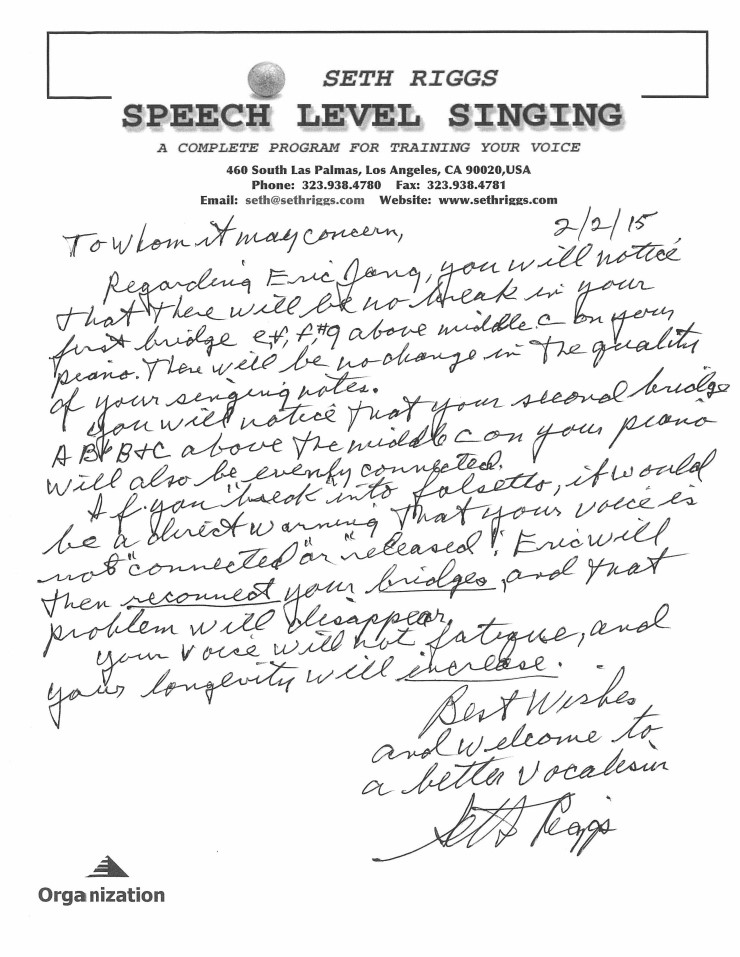 SETH RIGGS
SPEECH LEVEL SINGING
A COMPLETE PROGRAM FOR TRAINING YOUR VOICE
460 South Las Palmas, Los Angeles, CA 90020,USA
Phone: 323.938.4780 Fax: 323.938.4781
Email: seth@sethriggs.com Website: www.sethriggs.com
2/2/15
To Whom it may concern,
Regarding Eric Jang, you will notice
that there will be no break in your
first bridge above middle C on your
piano. There will be no change in the quality
of your singing notes.
You will notice that your second bridge
A Bb B+C above the middle C on your piano
will also be evenly connected.
If you "break" into falsetto, it would
be a direct warning that your voice is
not "connected" or "released". Eric will
then reconnect your bridges, and that
problem will disappear.
Your voice will not fatigue, and
your longevity will increase.
Best Wishes
and welcome to
a better
Seth Riggs
Organization